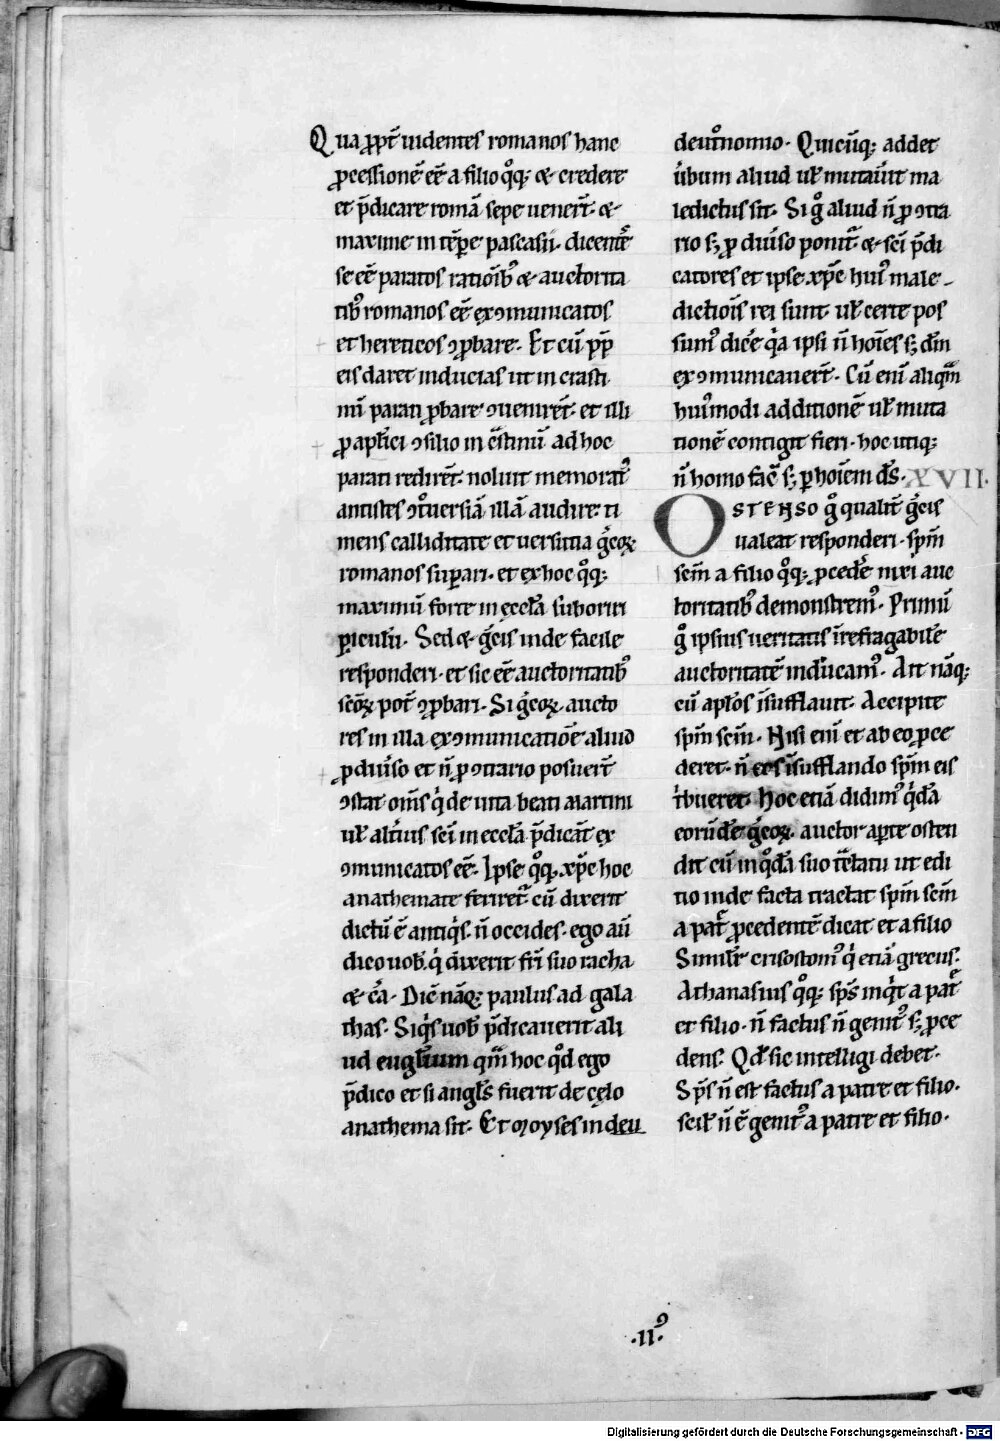 Qua ꝓpt̄ uidentes romanos hanc
ꝓcessionē eē a filio qͦq; & credere
et p̄dicare romā sepe uener̄t. &
maxime in tēpe pascasii. dicentē
se eē paratos ratioīb; & auctorita
tib; romanos eē exꝯmunicatos
et hereticos ꝯꝓbare. Et cū pp̄
eis daret inducias ut in crasti
nū parati ꝓbare ꝯuenirēt. et illi
ꝓ apl̄ici ꝯsilio in c̄stinū ad hoc
parati redirēt. noluit memorat̄
antistes ꝯͦtuersiā illā audire. ti
mens calliditate et uersutia gͨcoꝝ
romanos suꝑari. et ex hoc qͦq;
maximū forte in ęccl̄a suboriri
ꝑiculū. Sed & gͨcis inde facile
responderi. et sic eē auctoritatib;
sc̄oꝝ pot̄ ꝯꝓbari. Si gͨcoꝝ aucto
res in illa exꝯmunicatiōe aliud
ꝓ diūso et n̄ ꝓ ꝯtrario posuer̄t
ꝯstat om̄s qͥ de uita beati martini
ul̄ altīus sc̄i in eccl̄a p̄dicāt ex
ꝯmunicatos eē. Ipse qͦq; xp̄c hoc
anathemate feriret̄ cū dixerit
dictū ē antiqͥs. n̄ occides. ego aū
dico uob̄. qͥ dixerit fr̄i suo racha
& cͣ. Dic̄ nāq; paulus ad gala
thas. Siqͥs uob̄ p̄dicauerit ali
ud euglium qm̄ hoc qͦd ego
p̄dico et si angl̄s fuerit de cęlo
anathema sit. Et moyses in deu
deut̄onomio. Quicūq; addet
ūbum aliud ul̄ mutaūit ma
ledictus sit. Si gͦ aliud n̄ ꝓ ꝯtra
rio s; ꝓ diūso ponit̄. & sc̄i p̄di
catores et ipse xp̄c huiꝰ male
dictiōis rei sunt. ul̄ certe pos
sumꝰ dicē qͥa ipsi n̄ hoīes s; dm̄
exꝯmunicauer̄t. Cū eni aliqm̄
huiꝰmodi additionē ul̄ muta
tionē contigit fieri. hoc utiq;
n̄ homo fac̄ s; ꝑ hoīem ds̄. XVII.
OSTENSO gͦ qualit̄ gͨcis
ualeat responderi. spm̄
scm̄ a filio qͦq; ꝓcedē nixi auc
toritatib; demonstremꝰ. Primū
gͦ ipsius ueritatis īrefragabilē
auctoritatē inducamꝰ. Ait nāq;
cū apl̄os īsufflauit. Accipite
spm̄ scm̄. Nisi eni et ab eo ꝓce
deret. n̄ eos īsufflando spm̄ eis
t̄bueret. Hoc etiā didimꝰ qͥdā
eorūdē gͨcoꝝ. auctor aꝑte osten
dit cū in qͦdā suo t̄ctatu ut edi
tio inde facta tractat spm̄ scm̄
a pat̄ ꝓcedentē dicat et a filio
Simil̄r crisostomꝰ qͥ etiā grecus.
Athanasius qͦq; sp̄s inqͥt a pat̄
et filio. n̄ factus n̄ genitꝰ s; ꝓce
dens. Qd̄ sic intelligi debet.
Sp̄s n̄ est factus a patre et filio.
scil̄ n̄ ē genitꝰ a patre et filio.
.IIꝰ.
Digitalisierung gefördert durch die Deutsche Forschungsgemeinschaft - DFG